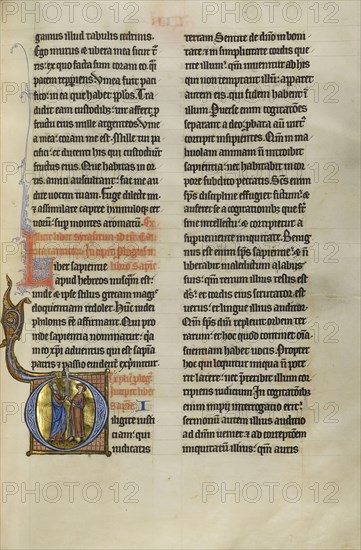 gamus illud tabulis cedrinis.
Ego murus & ubera mea sicut
ris: ex quo facta sum coram eo q̄
pacem reppiens. Vinea fuit paci
fico: in ea que habet pp̄los. Tra
didit eam custodib; uir affert p
fructu eius mille argenteos. Vine
a mea: coram me est. Mille tui
ci: et ducenti his qui custodiunt
fructus eius. Que habitas in or
tis. amici auscultant: fac me au
dire uocem tuam. Fuge dilecte mi
& assimilare capree hinnuloq; cer
uoꝝ: sup montes aromatum.
Liber sapientie
apud hebreos nusq̄m est:
unde & ipse stilus grecam magis
eloquentiam redolet. Hunc iudei
philonis eē affirmant. Qui pro
inde sapientia nominatur: q̄a
in ea xp̄i aduentus qui est sapīa
patris & passio euidenter exp̄mitur.
D iligite iusti
tiam: qui
iudicatis
terram. Sentite de dn̄o in boni
tate: & in simplicitate cordis que
rite illum: qm̄ inuenitur ab his
qui non temptant illū: apparet
autem eis. qui fidem habent ī
illum. Puerse enim cogitatōnes
separant a deo: probata aū uirt:
corripit insipientes. Qm̄ in ma
liuolam animam n̄ introibit
sapientia: nec habitabit in cor
pore subdito peccatis. Sc̄s enim
sp̄s discipline effugiet fictum: &
auferet se a cogitationib; que st̄
sine intellectu: & corripietur a
supueniente iniquitate. Benig
nus est enim sp̄s sapientie: & n̄
liberabit maledictum a labiis
suis: qm̄ renum illius testis est
ds̄: et cordis eius scrutator est
uerus: et lingue illius auditor.
Qm̄ sp̄s dn̄i repleuit orbem ter
rarum: et hoc quod continet oīa.
scientiam habet uocis. Propter
hoc qui loquitur iniqua n̄ pote
rit latere: nec p̄teribit illum cor
ripiens iudicium. In cogitatōib;
enim impii interrogatio erit:
sermonū autem illius auditio
ad dn̄m ueniet: & ad correptōem
iniquitatum illius: qm̄ auris
PHOTO12